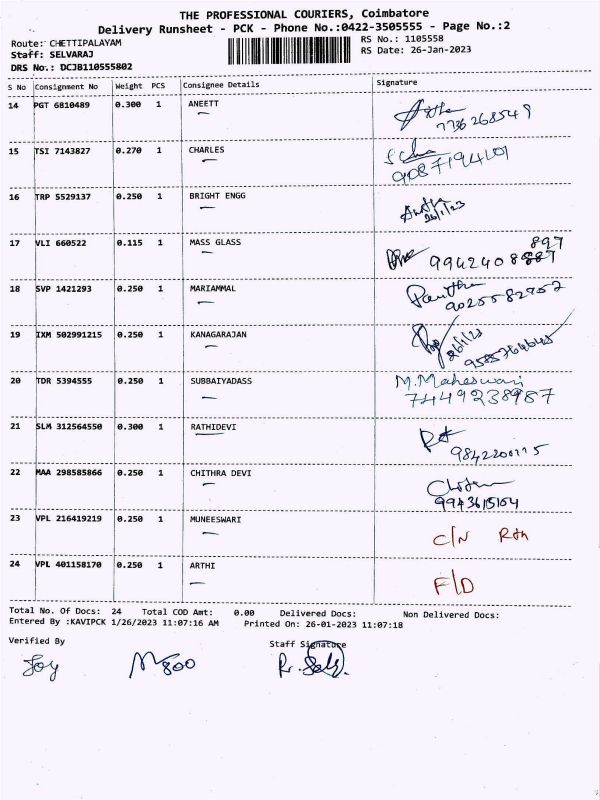 THE PROFESSIONAL COURIERS, Coimbatore
Delivery Runsheet - PCK - Phone No.:0422-3505555 - Page No.:2
Route: CHETTIPALAYAM
RS No.: 1105558
Staff: SELVARAJ
RS Date: 26-Jan-2023
DRS No.: DCJB110555802
S No Consignment No Weight PCS Consignee Details Signature
14 PGT 6810489 0.300 1 ANEETT
7736268549
15 TSI 7143827 0.270 1 CHARLES
9087194401
16 TRP 5529137 0.250 1 BRIGHT ENGG
26/1/23
17 VLI 660522 0.115 1 MASS GLASS
897
18 SVP 1421293 0.250 1 MARIAMMAL
9025582952
19 IXM 502991215 0.250 1 KANAGARAJAN
26/1/23
20 TDR 5394555 0.250 1 SUBBAIYADASS M.Maheswari
7449238987
21 SLM 312564550 0.300 1 RATHIDEVI
22 MAA 298585866 0.250 1 CHITHRA DEVI
9943615104
23 VPL 216419219 0.250 1 MUNEESWARI C/N
24 VPL 401158170 0.250 1 ARTHI
F/D
Total No. Of Docs: 24 Total COD Amt: 0.00 Delivered Docs: Non Delivered Docs:
Entered By :KAVIPCK 1/26/2023 11:07:16 AM Printed On: 26-01-2023 11:07:18
Verified By Staff Signature
Joy